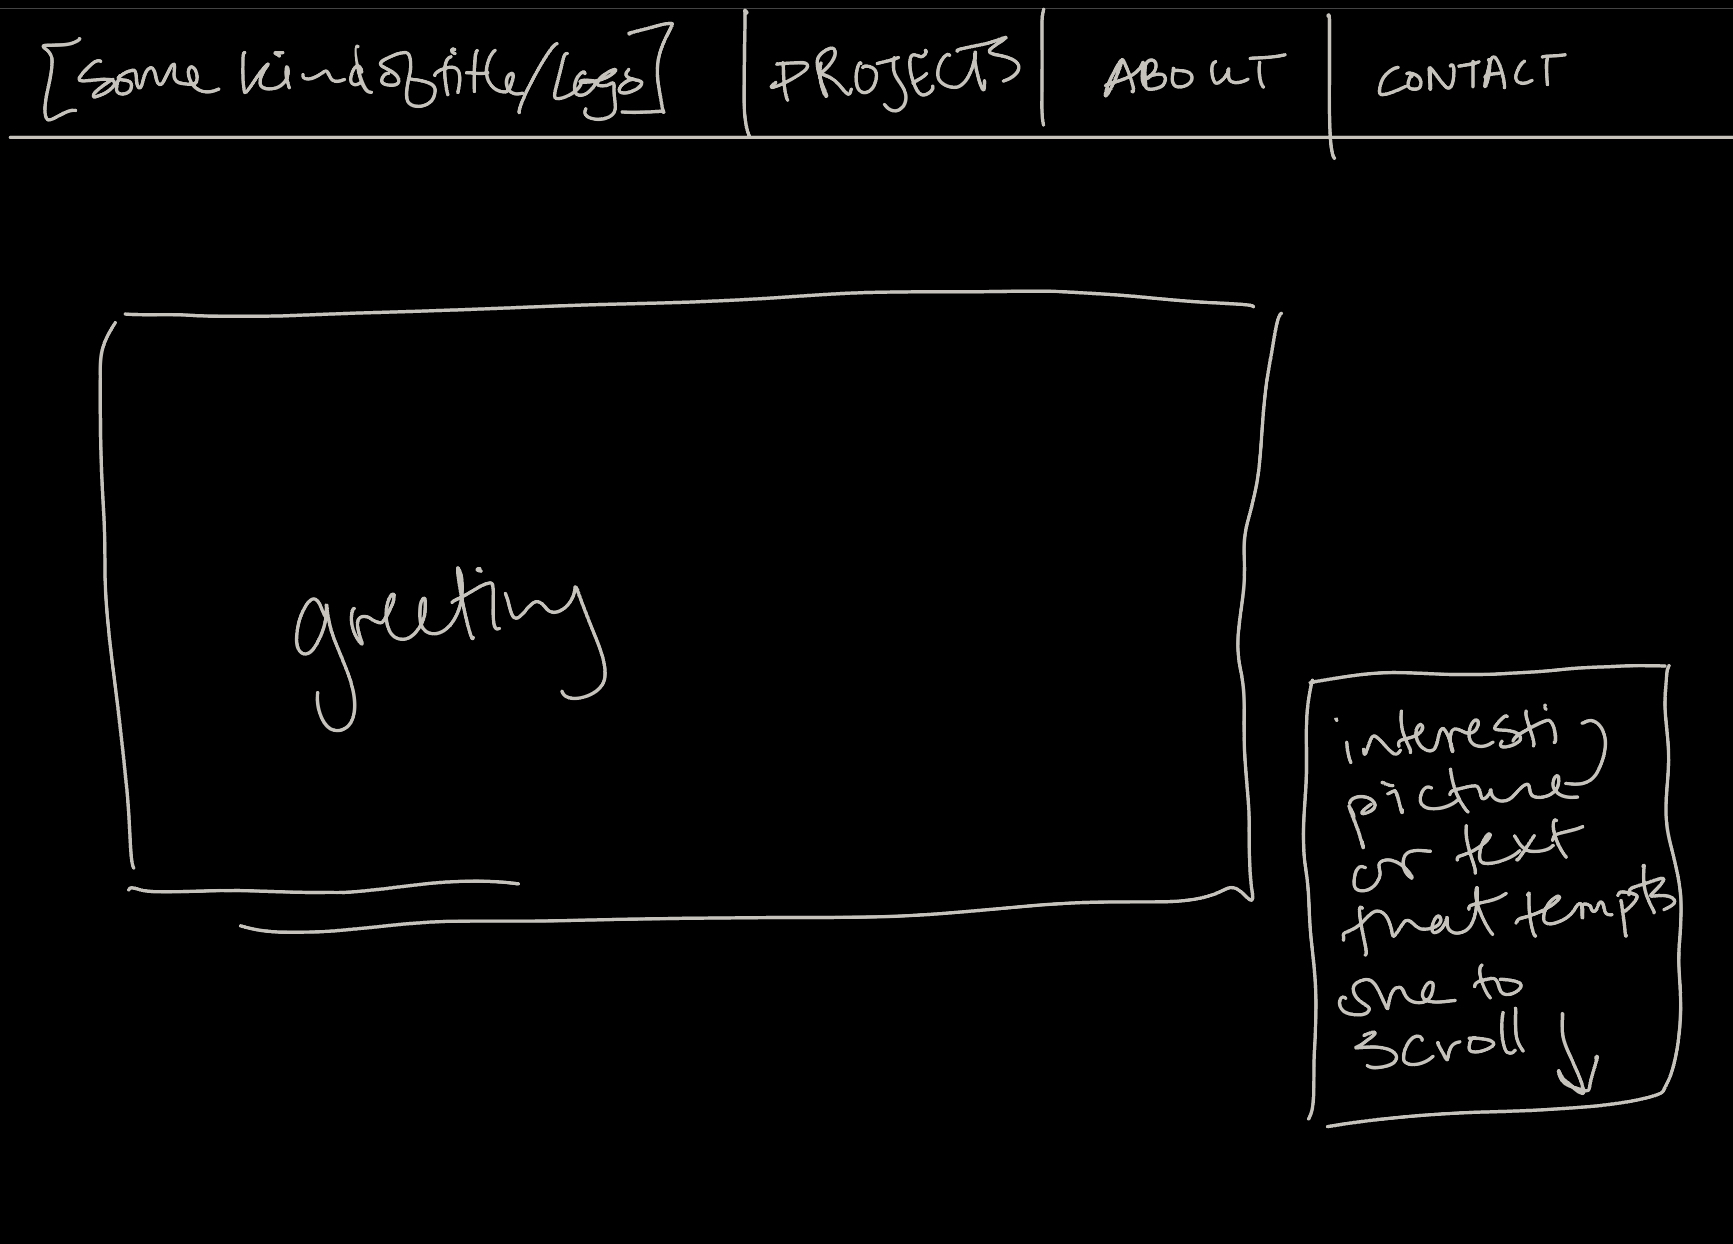 [some kind of title/logo] PROJECTS ABOUT CONTACT
greeting
interesting
picture
or text
that tempts
one to
scroll